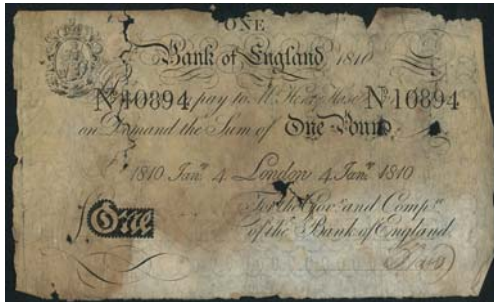 ONE
Bank of England 1810
No 10894 pay to Mr. Hen: Hase No 10894
on Demand the Sum of One Pound,
1810 Jany. 4 London 4 Jany. 1810
For the Govr. and Compa.
of the Bank of England.
£One